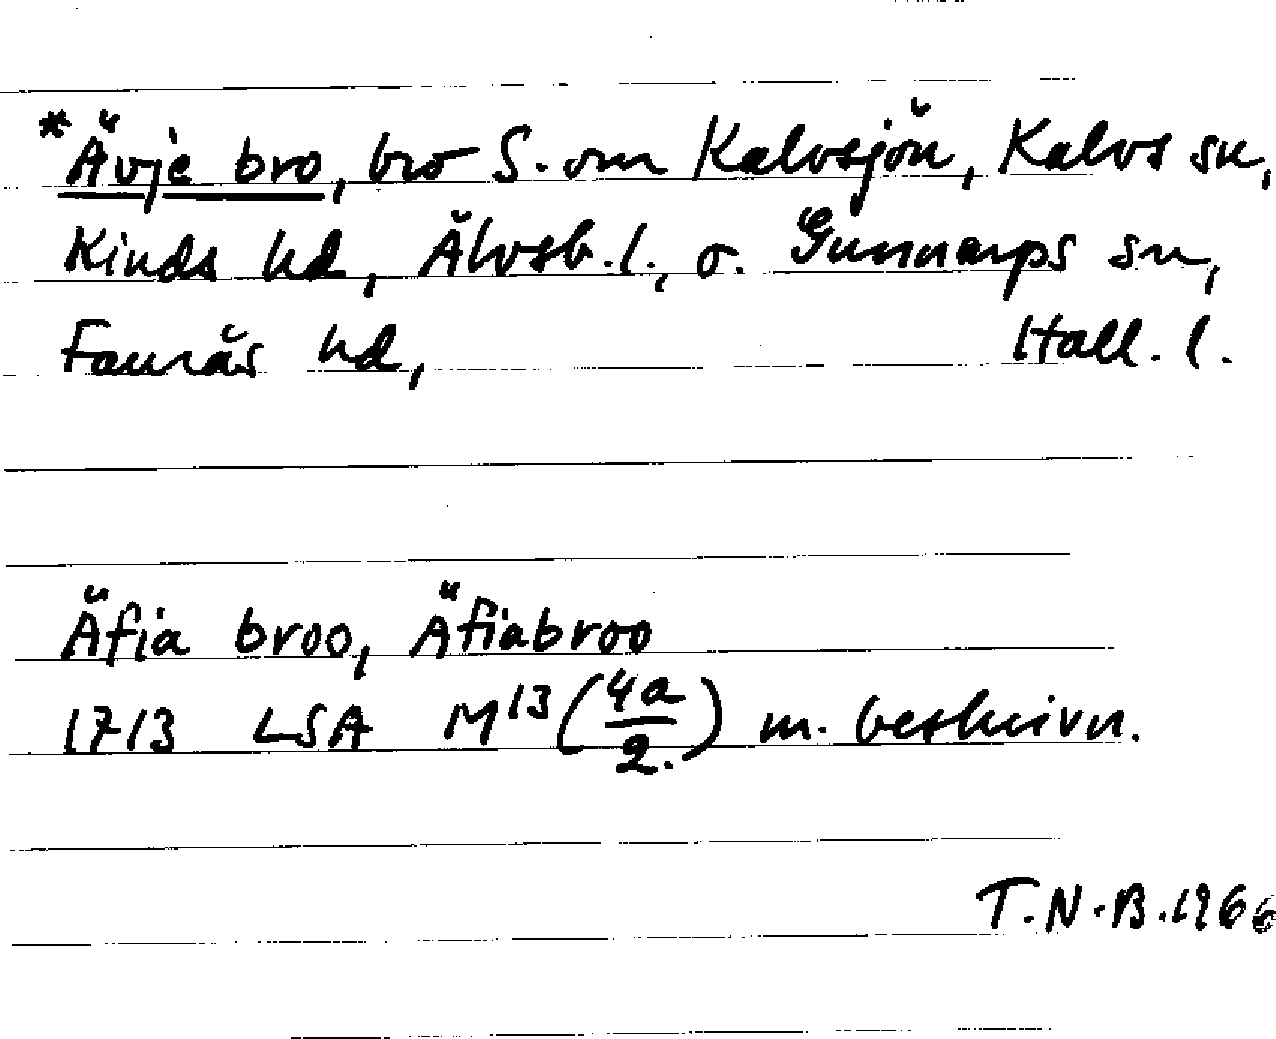 *Ävje bro, bro S. om Kalvsjön, Kalvs sn,
Kinds hd, Älvsb. l., o. Gunnarps sn,
Faurås hd, Hall. l.
Äfia broo, Äfiabroo
1713 LSA M13 (4a/2.) m. beskrivn.
T.N.B. 1966